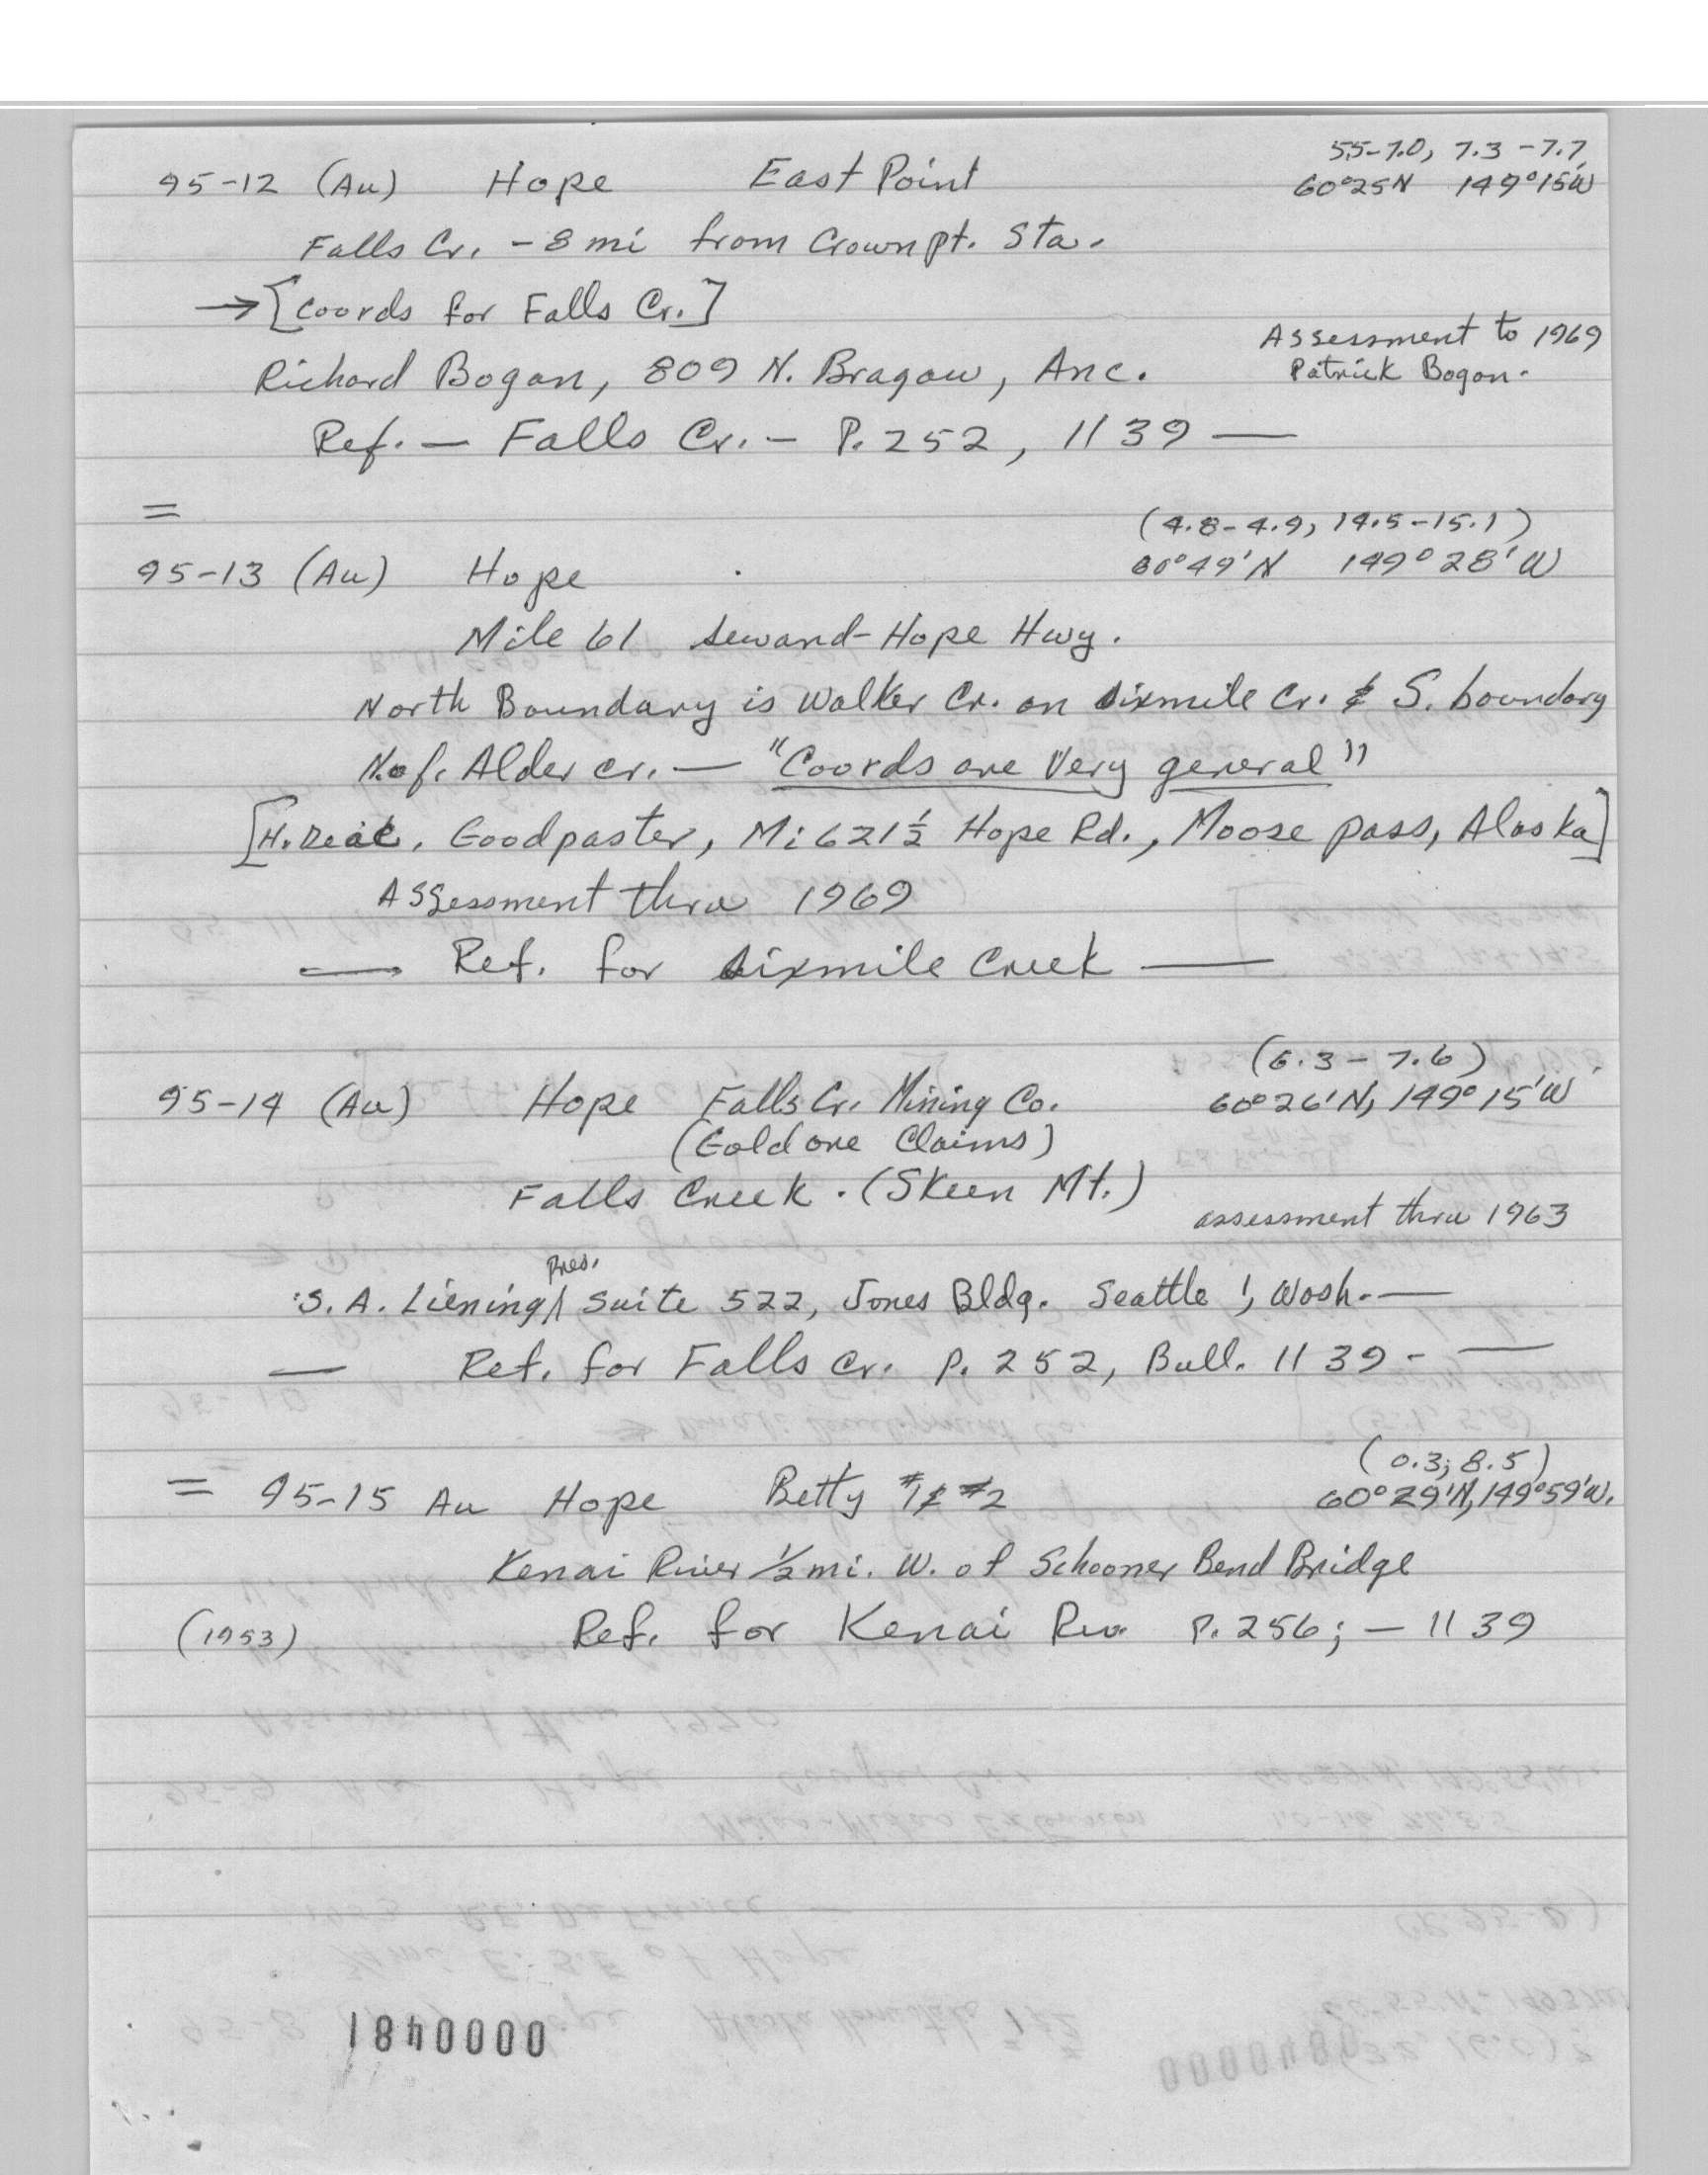 55-7.0, 7.3-7.7
95-12 (Au) Hope East Point 60°25N 149°15'W
Falls Cr. - 8 mi from Crown pt. Sta.
→ [Coords for Falls Cr.]
Assessment to 1969
Richard Bogan, 809 N. Bragaw, Anc. Patrick Bogan.
Ref. — Falls Cr. — P. 252, 1139 —
=
(4.8-4.9, 14.5-15.1)
95-13 (Au) Hope 60°49'N 149°28'W
Mile 61 Seward-Hope Hwy.
North Boundary is Walker Cr. on Sixmile Cr. & S. boundary
N. of. Alder cr. — "Coords are Very general"
[H. Goodpaster, Mi 62 1/2 Hope Rd., Moose pass, Alaska]
Assessment thru 1969
— Ref. for Sixmile Creek —
(6.3-7.6)
95-14 (Au) Hope Falls Cr. Mining Co. 60°26'N, 149°15'W
(Gold ore Claims)
Falls Creek. (Skeen Mt.)
assessment thru 1963
Pres.
S. A. Liening, Suite 522, Jones Bldg. Seattle 1, Wash. —
— Ref. for Falls Cr. P. 252, Bull. 1139 - —
(0.3; 8.5)
= 95-15 Au Hope Betty #1 & #2 60°29'N, 149°59'W.
Kenai River 1/2 mi. W. of Schooner Bend Bridge
(1953) Ref. for Kenai Riv. P. 256; — 1139
0000481